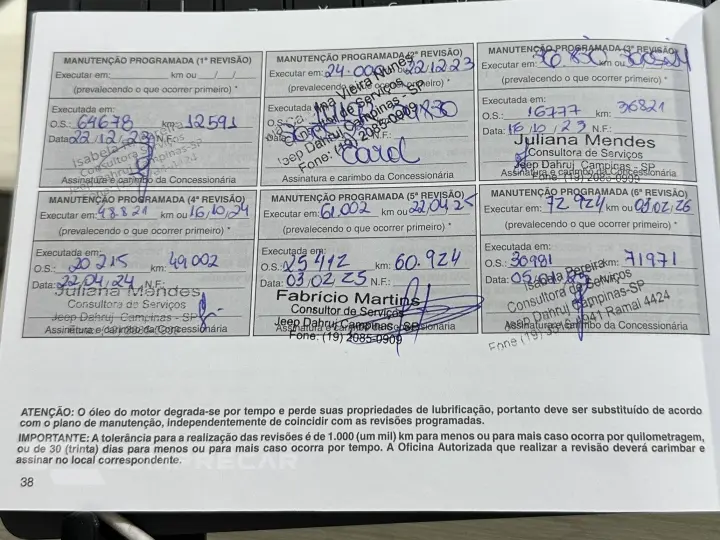 MANUTENÇÃO PROGRAMADA (1ª REVISÃO)
Executar em: km ou __/__/__
(prevalecendo o que ocorrer primeiro) *
Executada em:
O.S.: 64678 km: 12591
Data: 22/12/22 N.F.:
Isabela Pereira
Consultora de Serviços
Jeep Dahruj Campinas-SP
Assinatura e carimbo da Concessionária
MANUTENÇÃO PROGRAMADA (2ª REVISÃO)
Executar em: 24.000 km ou 22/12/23
(prevalecendo o que ocorrer primeiro) *
Executada em:
O.S.: 24830
Data: N.F.:
Vieira Nunes
de Serviços
Jeep Dahruj Campinas - SP
Fone: (19) 2085-0909
Carol
Assinatura e carimbo da Concessionária
MANUTENÇÃO PROGRAMADA (3ª REVISÃO)
Executar em: 36.830 km ou
(prevalecendo o que ocorrer primeiro) *
Executada em:
O.S.: 16777 km: 36821
Data: 16/10/23 N.F.:
Juliana Mendes
Consultora de Serviços
Jeep Dahruj Campinas-SP
Fone: (19) 2085-0909
Assinatura e carimbo da Concessionária
MANUTENÇÃO PROGRAMADA (4ª REVISÃO)
Executar em: 48.821 km ou 16/10/24
(prevalecendo o que ocorrer primeiro) *
Executada em:
O.S.: 20215 km: 49002
Data: 22/04/24 N.F.:
Juliana Mendes
Consultora de Serviços
Jeep Dahruj Campinas - SP
Assinatura e carimbo da Concessionária
MANUTENÇÃO PROGRAMADA (5ª REVISÃO)
Executar em: 61.002 km ou 22/04/25
(prevalecendo o que ocorrer primeiro) *
Executada em:
O.S.: 25412 km: 60.924
Data: 03/02/25 N.F.:
Fabrício Martins
Consultor de Serviços
Jeep Dahruj Campinas-SP
Fone: (19) 2085-0909
Assinatura e carimbo da Concessionária
MANUTENÇÃO PROGRAMADA (6ª REVISÃO)
Executar em: 72.924 km ou 03/02/26
(prevalecendo o que ocorrer primeiro) *
Executada em:
O.S.: 30981 km: 71971
Data: 05/
Isabela Pereira
Consultora de Serviços
Jeep Dahruj Campinas-SP
Fone (19) 4941 Ramal 4424
Assinatura e carimbo da Concessionária
ATENÇÃO: O óleo do motor degrada-se por tempo e perde suas propriedades de lubrificação, portanto deve ser substituído de acordo
com o plano de manutenção, independentemente de coincidir com as revisões programadas.
IMPORTANTE: A tolerância para a realização das revisões é de 1.000 (um mil) km para menos ou para mais caso ocorra por quilometragem,
ou de 30 (trinta) dias para menos ou para mais caso ocorra por tempo. A Oficina Autorizada que realizar a revisão deverá carimbar e
assinar no local correspondente.
COMPRECAR
38